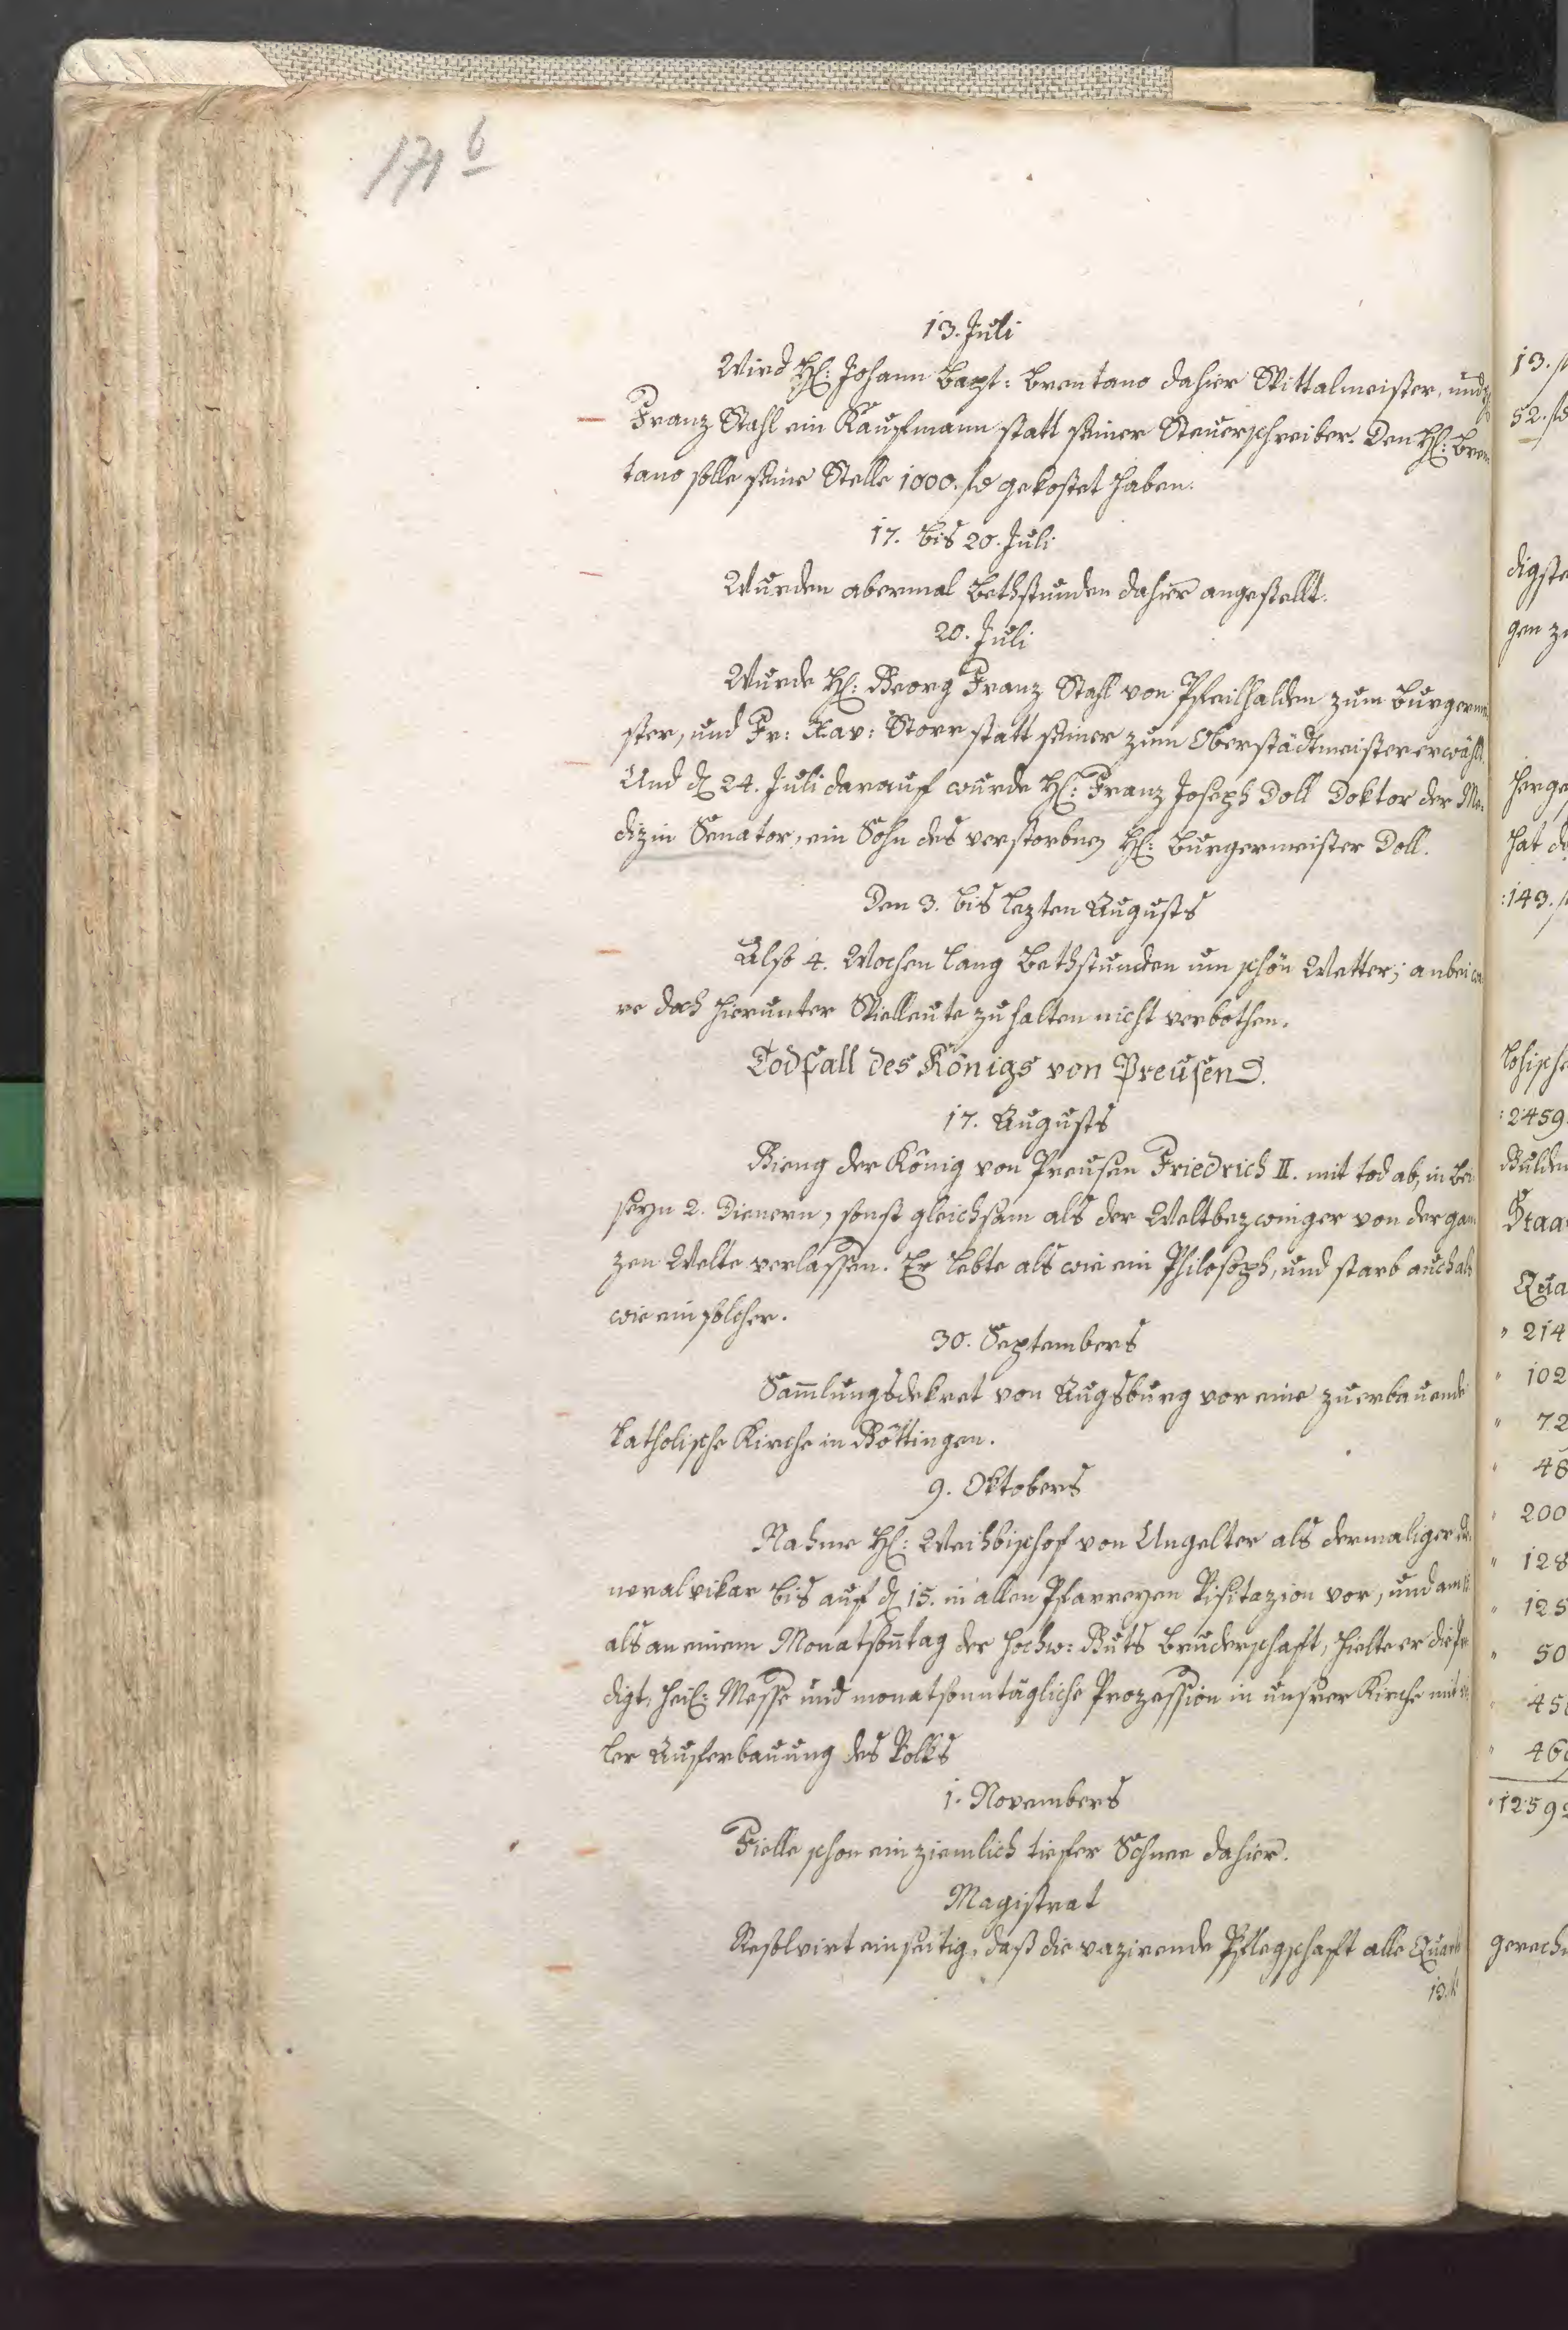 171 b
13. Juli
Wird H: Johann Bapt: Brentano dahier Spittalmeister, und
Franz Stahl ein Kaufmann statt seiner Steuerschreiber. Den H: Bren-
tano solle seine Stelle 1000. fl gekostet haben.
17. bis 20. Juli
Wurden abermal Bethstunden dahier angestellt.
20. Juli
Wurde H: Georg Franz Stahl von Pfeilhalden zum Burgermei
ster, und Fr: Xav: Storr statt seiner zum Oberstädtmeister erwählt.
Und d 24. Juli darauf wurde H: Franz Joseph Doll Doktor der Me-
dizin Senator, ein Sohn des verstorbnen H: Burgermeister Doll.
Den 3. bis lezten Augusts
Also 4. Wochen lang Bethstunden um schön Wetter; anbei wa
re doch hierunter Spielleute zu halten nicht verbothen.
Todfall des Königs von Preusen.
17. Augusts
Gieng der König von Preusen Friedrich II. mit tod ab, in Bei
seyn 2. Dienern, sonst gleichsam als der Weltbezwinger von der gan
zen Welte verlassen. Er lebte als wie ein Philosoph, und starb auch als
wie ein solcher.
30. Septembers
Sam̄lungsdekret von Augsburg vor eine zuerbauende
katholische Kirche in Göttingen.
9. Oktobers
Nahme H: Weihbischof von Ungelter als dermaliger Ge
neralvikar bis auf d 15. in allen Pfarreyen Visitazion vor, und am
als an einem Monatsoñtag der hochw: Guts Bruderschaft, hielte er die Pre
digt, heil: Messe und monatsonntägliche Prozession in unsrer Kirche mit
ler Auferbauung des Volks
1. Novembers
Fielle schon ein ziemlich tiefer Schnee dahier.
Magistrat
Resolvirt einseitig, daß die vazirende Pflegschafft alle Quart
13. fl
13. fl
52. fl
digste
gen zu
herge
hat de
:143. fl
lohische
:2459.
Gulden
Staa
Qua
" 214
" 102
" 72
" 48
" 200
" 128
" 125
" 50
45
" 46
" 1259
gerech